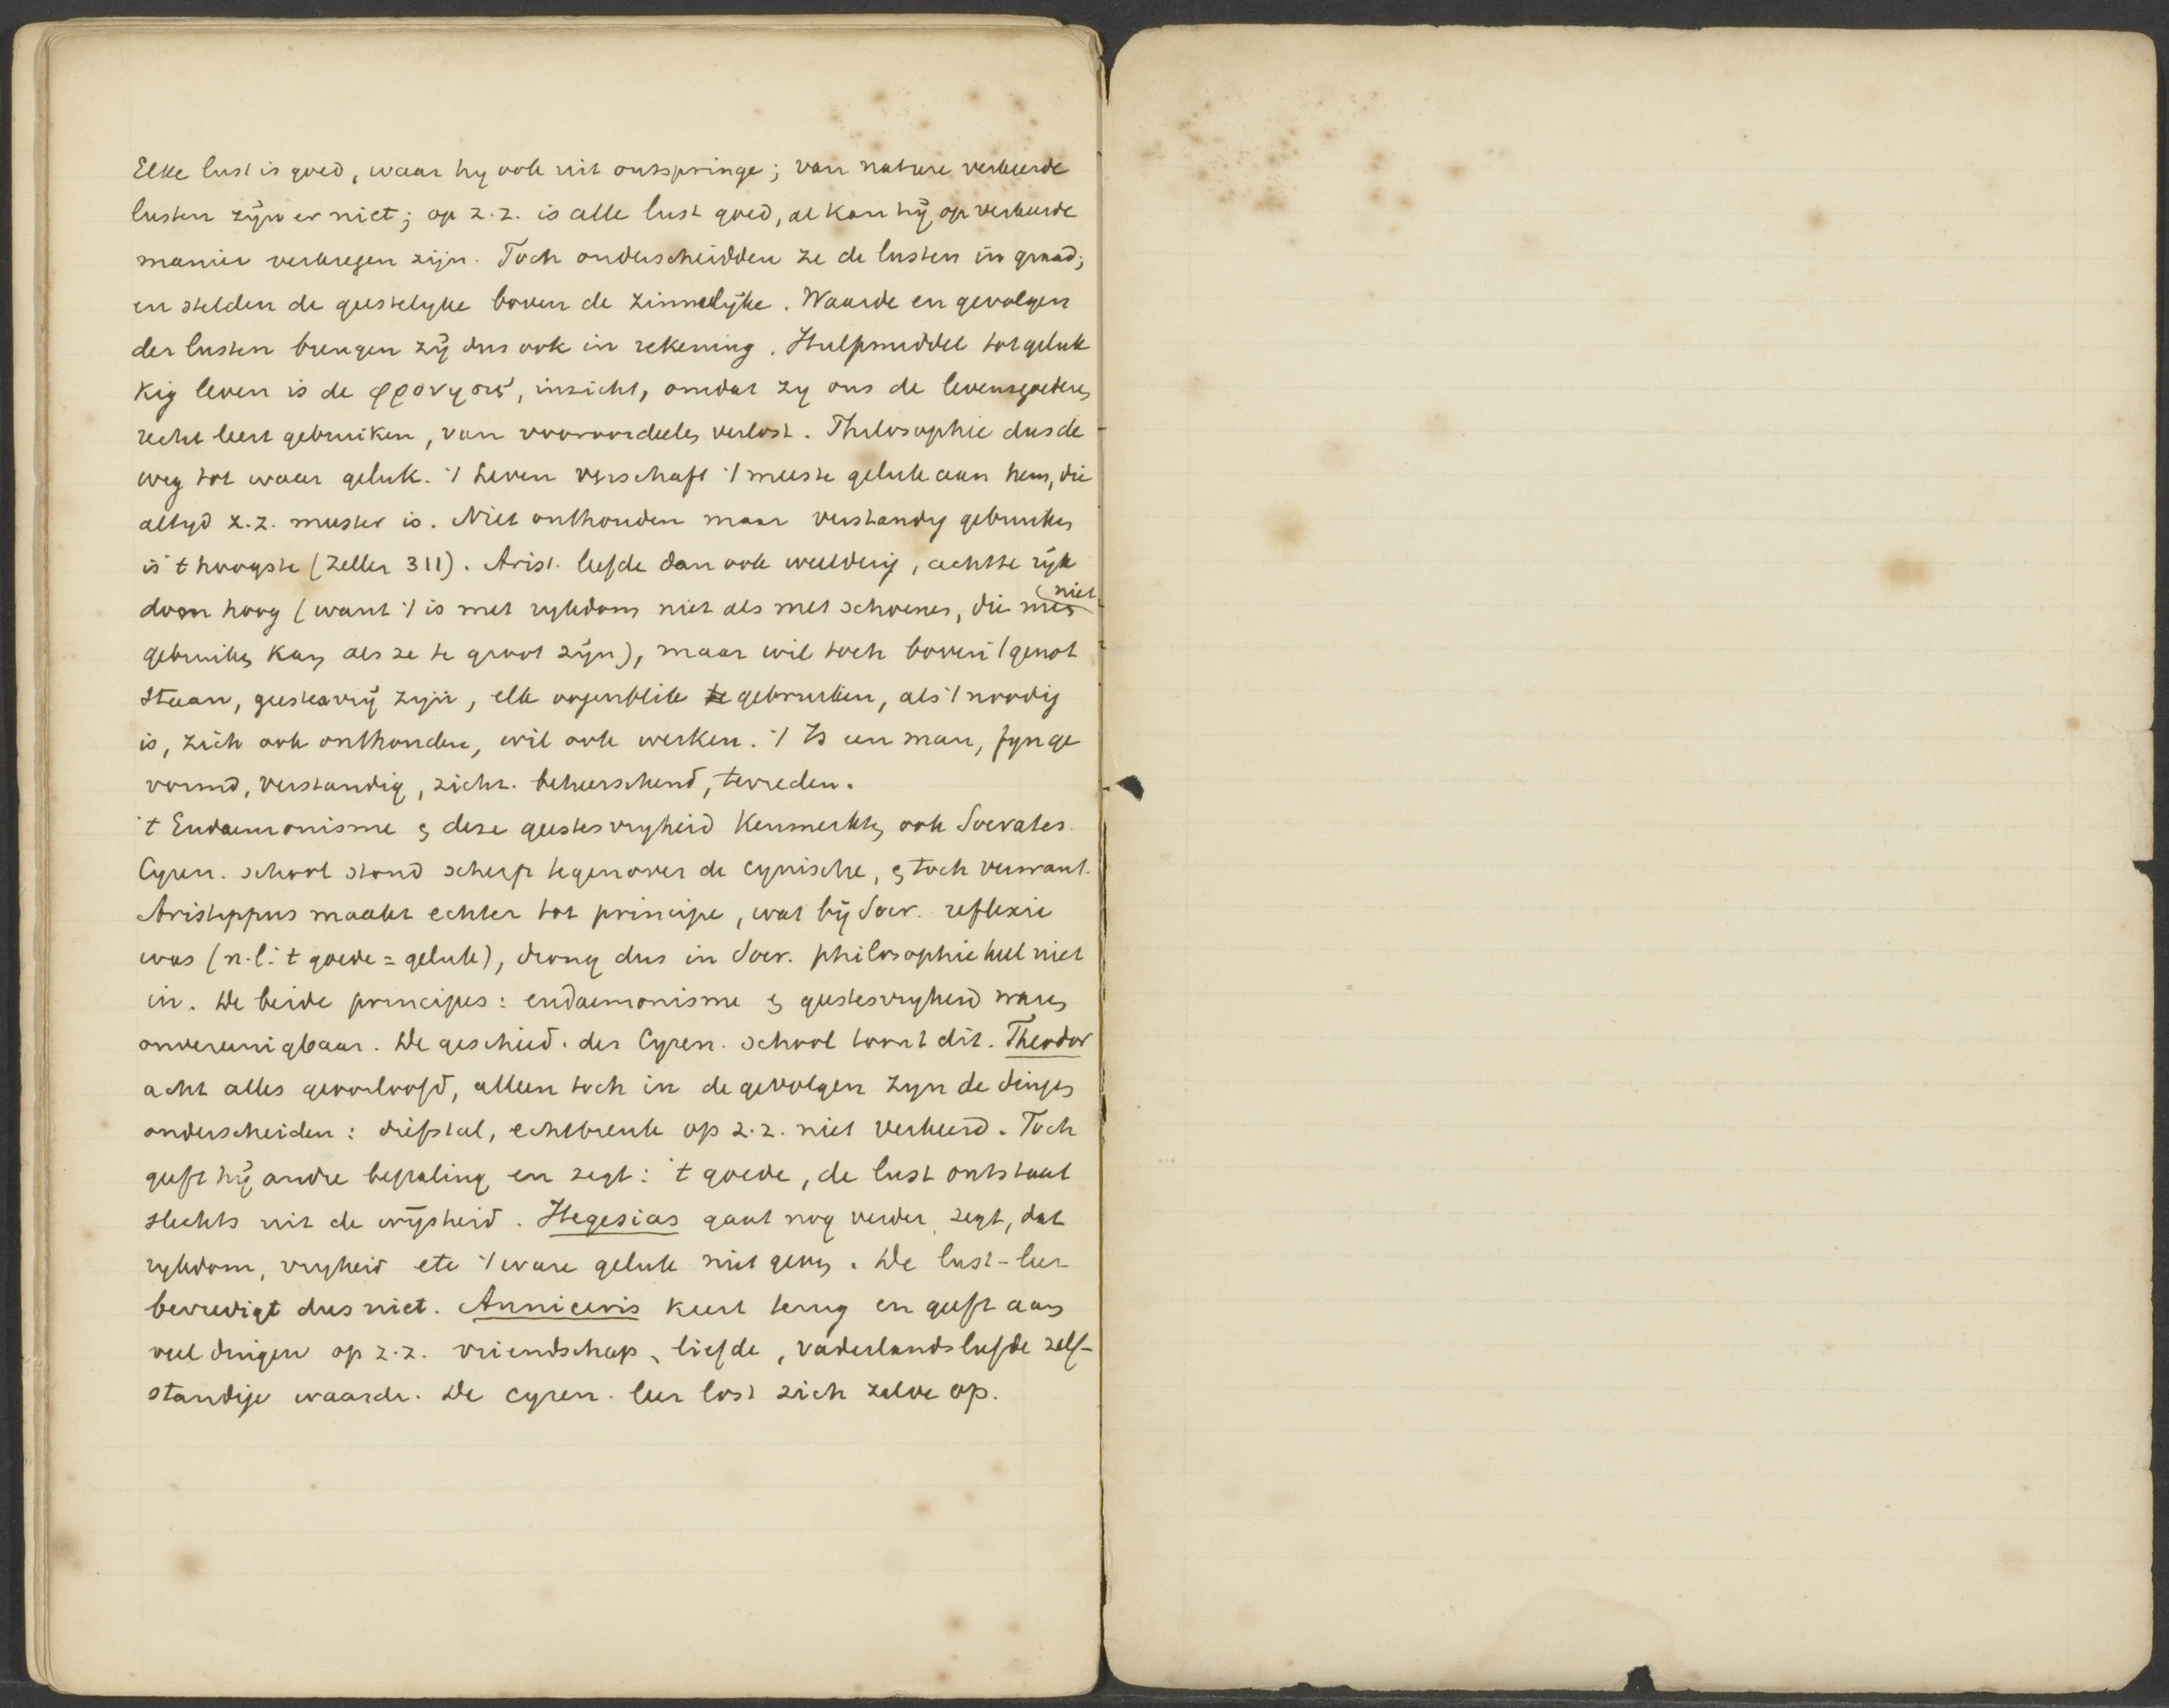 Elke lust is goed, waar hy ook uit ontspringe; van nature verkeerde
lusten zijn er niet; op z.z. is alle lust goed, al kan hij op verkeerde
manier verkregen zijn. Toch onderscheidden ze de lusten in graad;
en stelden de geestelyke boven de zinnelijke. Waarde en gevolgen
der lusten brengen zij dus ook in rekening. Hulpmiddel tot geluk
kig leven is de φρονησις, inzicht, omdat zy ons de levensgoederen
recht leert gebruiken, van vooroordeelen verlost. Philosophie dus de
weg tot waar geluk. 't Leven verschaft 't meeste geluk aan hem, die
altyd z.z. meester is. Niet onthouden maar verstandig gebruiken
is 't hoogste (Zeller 311). Arist. leefde dan ook weelderig, achtte rijk
dom hoog (want 't is met rykdom niet als met schoenen, die men niet
gebruiken kan als ze te groot zijn), maar wil toch boven 't genot
staan, geestesvrij zijn, elk oogenblik te gebruiken, als 't noodig
is, zich ook onthouden, wil ook werken. 't Is een man, fyn ge
vormd, verstandig, zichz. beheerschend, tevreden.
't Eudaemonisme en deze geestesvryheid kenmerkten ook Socrates.
Cyren. school stond scherp tegenover de cynische, en toch verwant.
Aristippus maakt echter tot principe, wat bij Socr. reflexie
was (n.l. 't goede = geluk), drong dus in Socr. philosophie heel niet
in. De beide principes: eudaemonisme en geestesvryheid waren
onvereenigbaar. De geschied. der Cyren. school toont dit. Theodor
acht alles geoorloofd, alleen toch in de gevolgen zyn de dingen
onderscheiden: diefstal, echtbreuk op z.z. niet verkeerd. Toch
geeft hij andre bepaling en zegt: 't goede, de lust ontstaat
slechts uit de wijsheid. Hegesias gaat nog verder, zegt, dat
rykdom, vryheid etc 't ware geluk niet geven. De lust-leer
bevredigt dus niet. Anniceris keert terug en geeft aan
veel dingen op z.z. vriendschap, liefde, vaderlandsliefde zelf-
standige waarde. De cyren. leer lost zich zelve op.